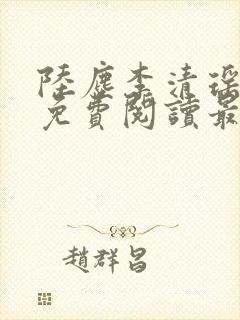 陸塵李清瑤
免費閱讀最
趙群昌